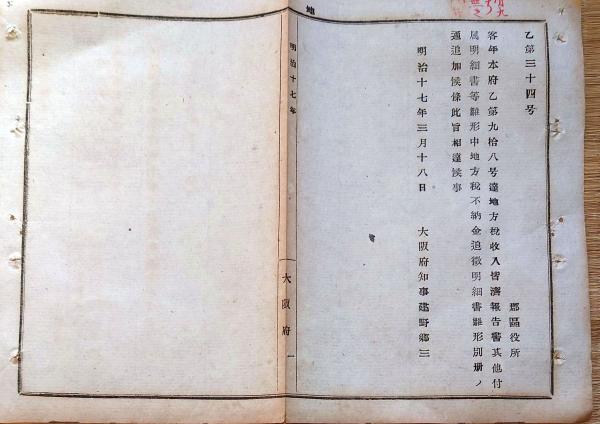 乙第三十四号
郡區役所
客年本府乙第九拾八号達地方税收入皆濟報告書其他付
属明細書等雛形中地方税不納金追徵明細書雛形別册ノ
通追加候條此旨相達候事
明治十七年三月十八日
大阪府知事建野鄕三
地
明治十七年
大阪府
一